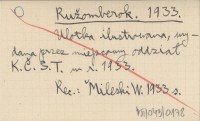 Ružomberok. 1933.
Ulotka ilustrowana, wy-
dana przez miejscowy oddział
K.Č.S.T. w r. 1933.
Rec.: Mileski W. 1933 s.